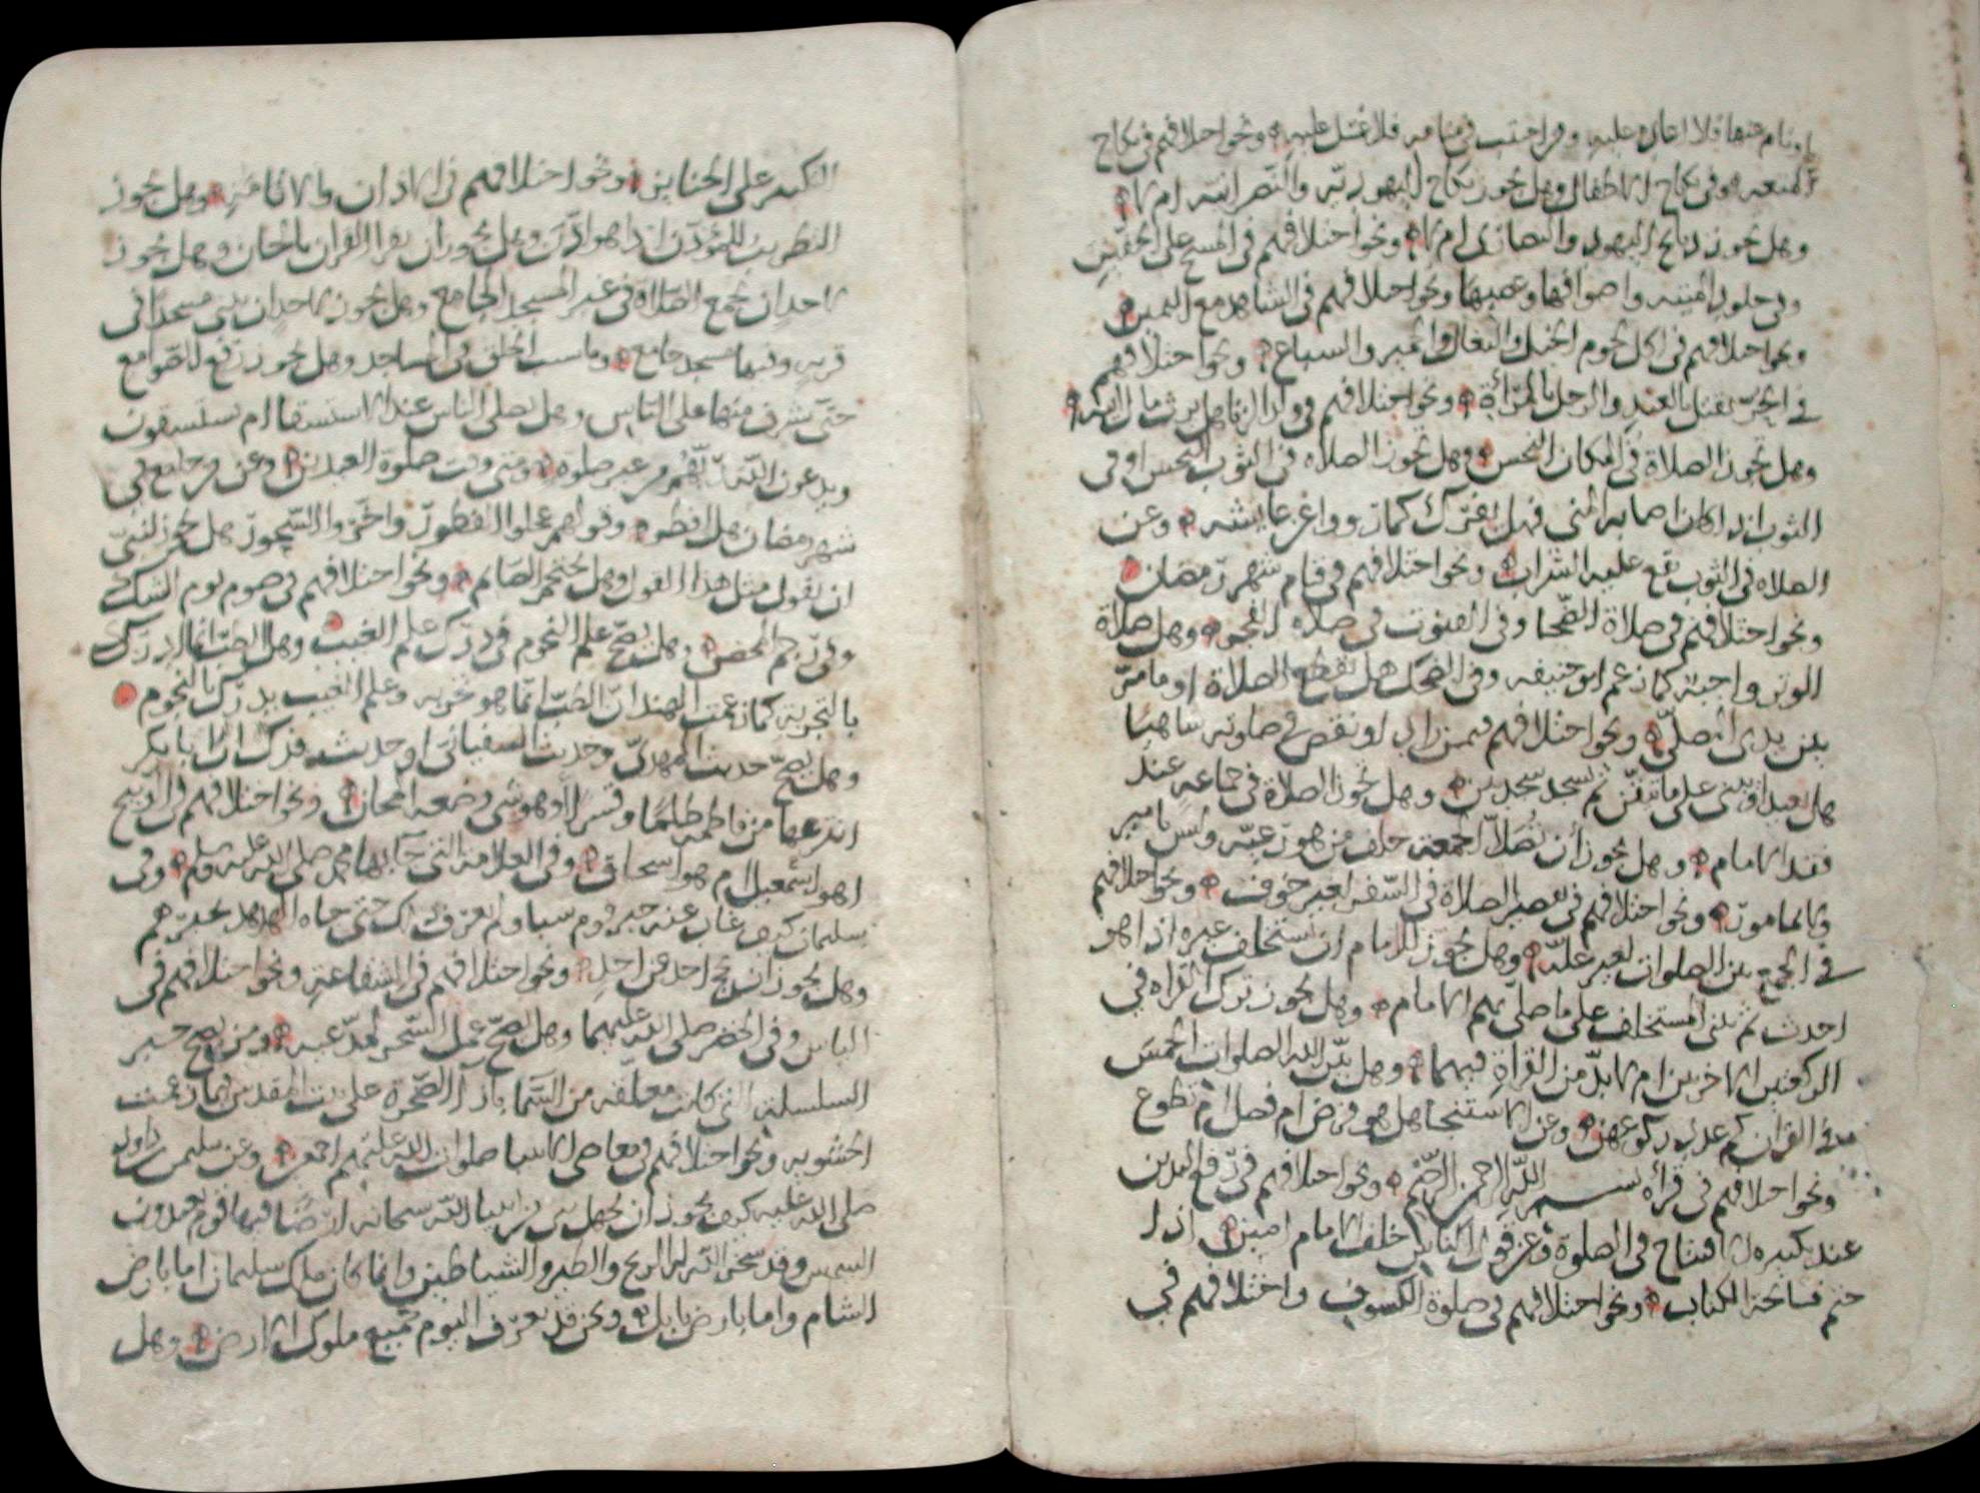 او نام عنها فلا اعادة عليه ومن احتلم في منامه فلا غسل عليه ونحو اختلافهم في نكاح
المتعه وفي نكاح الاطفال وهل يجوز نكاح اليهوديه والنصرانيه ام لا
وهل يجوز ذبائح اليهود والنصارى ام لا ونحو اختلافهم في المسح على الخفين
وفي جلود الميته واصوافها وعصبها ونحو اختلافهم في الشاهد مع اليمين
ونحو اختلافهم في اكل لحوم الخيل والبغال والحمير والسباع ونحو اختلافهم
في الحر يقتل بالعبد والرجل بالمرأة ونحو اختلافهم في ولد الزنا هل يرث مال
وهل تجوز الصلاة في المكان النجس وهل تجوز الصلاه في الثوب النجس او في
الثوب اذا كان اصابه المني فهل يفرك كما رووا عن عايشه وعن
الصلاه في الثوب يقع عليه الشراب ونحو اختلافهم في قيام شهر رمضان
ونحو اختلافهم في صلاة الضحا وفي القنوت في صلاه الفجر وهل صلاة
الوتر واجبة كما زعم ابو حنيفه وفي الضحك هل يقطع الصلاة او ما مر
بين يدى المصلي ونحو اختلافهم فيمن زاد او نقص في صلوته ساهيا
هل يعيد او يبنى على ما تيقن ثم يسجد سجدتين وهل تجوز الصلاة في جماعه عند
فقد الامام وهل يجوز أن تصلا الجمعة خلف من هو رعيه وليس بامير
ولا مامور ونحو اختلافهم في تقصير الصلاة في السفر لغير خوف ونحو اختلافهم
في الجمع بين الصلوات لغير علة وهل يجوز للامام ان يستخلف غيره اذا هو
احدث ثم يبنى المستخلف على ما صلى بهم الامام وهل يجوز ترك القراه في
الركعتين الاخرتين ام لا بد من القراة فيهما وهل بين الله الصلوات الخمس
في القران كم عدد ركوعهن وعن الاستنجا هل هو فرض ام فضل ام تطوع
ونحو اختلافهم في قرأة بسم الله الرحمن الرحيم ونحو اختلافهم في رفع اليدين
عند تكبيره الافتتاح في الصلوة وعن قول الناس خلف الامام امين اذا
ختم فاتحة الكتاب ونحو اختلافهم في صلوة الكسوف واختلافهم في
التكبير على الجنايز ونحو اختلافهم في الاذان والاقامة وهل يجوز
التطريب للمؤذن اذا هو اذن وهل يجوز ان يقرا القران بالحان وهل يجوز
لاحد ان يجمع الصلاة في غير المسجد الجامع وهل يجوز لاحد ان يبنى مسجدا في
قريه وفيها مسجد جامع وما سبب الحلق في المساجد وهل يجوز رفع الصوامع
حتى يشرف منها على الناس وهل يصلى الناس عند الاستسقا ام يستسقون
ويدعون الله من غير صلوه ومتى وقت صلوة العيدين وعن من جامع في
شهر رمضان هل افطر وقولهم عجلوا الفطور واخروا السحور هل يجوز لنبي
ان يقول مثل هذا القول وهل يحتجم الصايم ونحو اختلافهم في صوم يوم الشك
وفي رجم المحصن وهل يصح علم النجوم في درك علم الغيب وهل الطب انما ادرك
بالتجربة كما زعمت الهند ان الطب انما هو تجربه وعلم الغيب يدرك بالنجوم
وهل يصح حديث المهدي وحديث السفياني او حديث فدك ان ابا بكر
انتزعها من فاطمه ظلما وقسرا أو هو شي وضعه المجان ونحو اختلافهم في الذبيح
اهو اسمعيل ام هو اسحاق وفي العلامة التي جا بها محمد صلى الله عليه وسلم وفى
سليمان كيف غاب عنه خبر قوم سبا ولم يعرف ذلك حتى جاه الهدهد بخبرهم
وهل يجوز ان يحج احد عن احد ونحو اختلافهم في الشفاعة ونحو اختلافهم في
الياس وفي الخضر صلى الله عليهما وهل يصح عمل السحر لمدعيه ومن يصح خبر
السلسله التى كانت معلقه من السما بازا الصخرة على بيت المقدس كما زعمت
الحشويه ونحو اختلافهم في معاصى الانبيا صلوات الله عليهم اجمعين وعن سليمن بن داود
صلى الله عليه كيف يجوز ان يجهل نبي من انبيا الله سبحانه ارضا فيها قوم يعبدون
الشمس وقد سخر الله له الريح والطير والشياطين وانما كان ملك سليمان اما بارض
الشام واما بارض بابل ونحن قد نعرف اليوم جميع ملوك الارض وهل